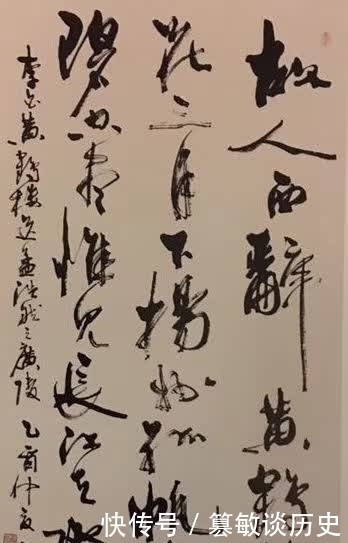 故人西辭黃鶴
花三月下揚州孤帆
碧空盡惟見長江天際
李白黃鶴樓送孟浩然之廣陵 乙酉仲夏
快传号 / 篡敏谈历史